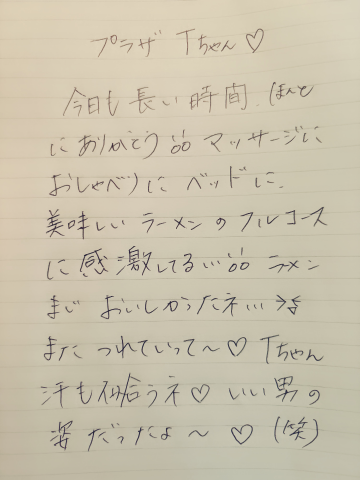 プラザ Tちゃん♡
今日も長い時間、ほんと
にありがとう!!! マッサージに
おしゃべりに ベッドに、
美味しい ラーメンのフルコース
に感激してる…!!! ラメン
まじ おいしかったネ…
また つれていって〜♡ Tちゃん
汗も似合うネ♡ いい男の
姿だったよ〜♡ (笑)